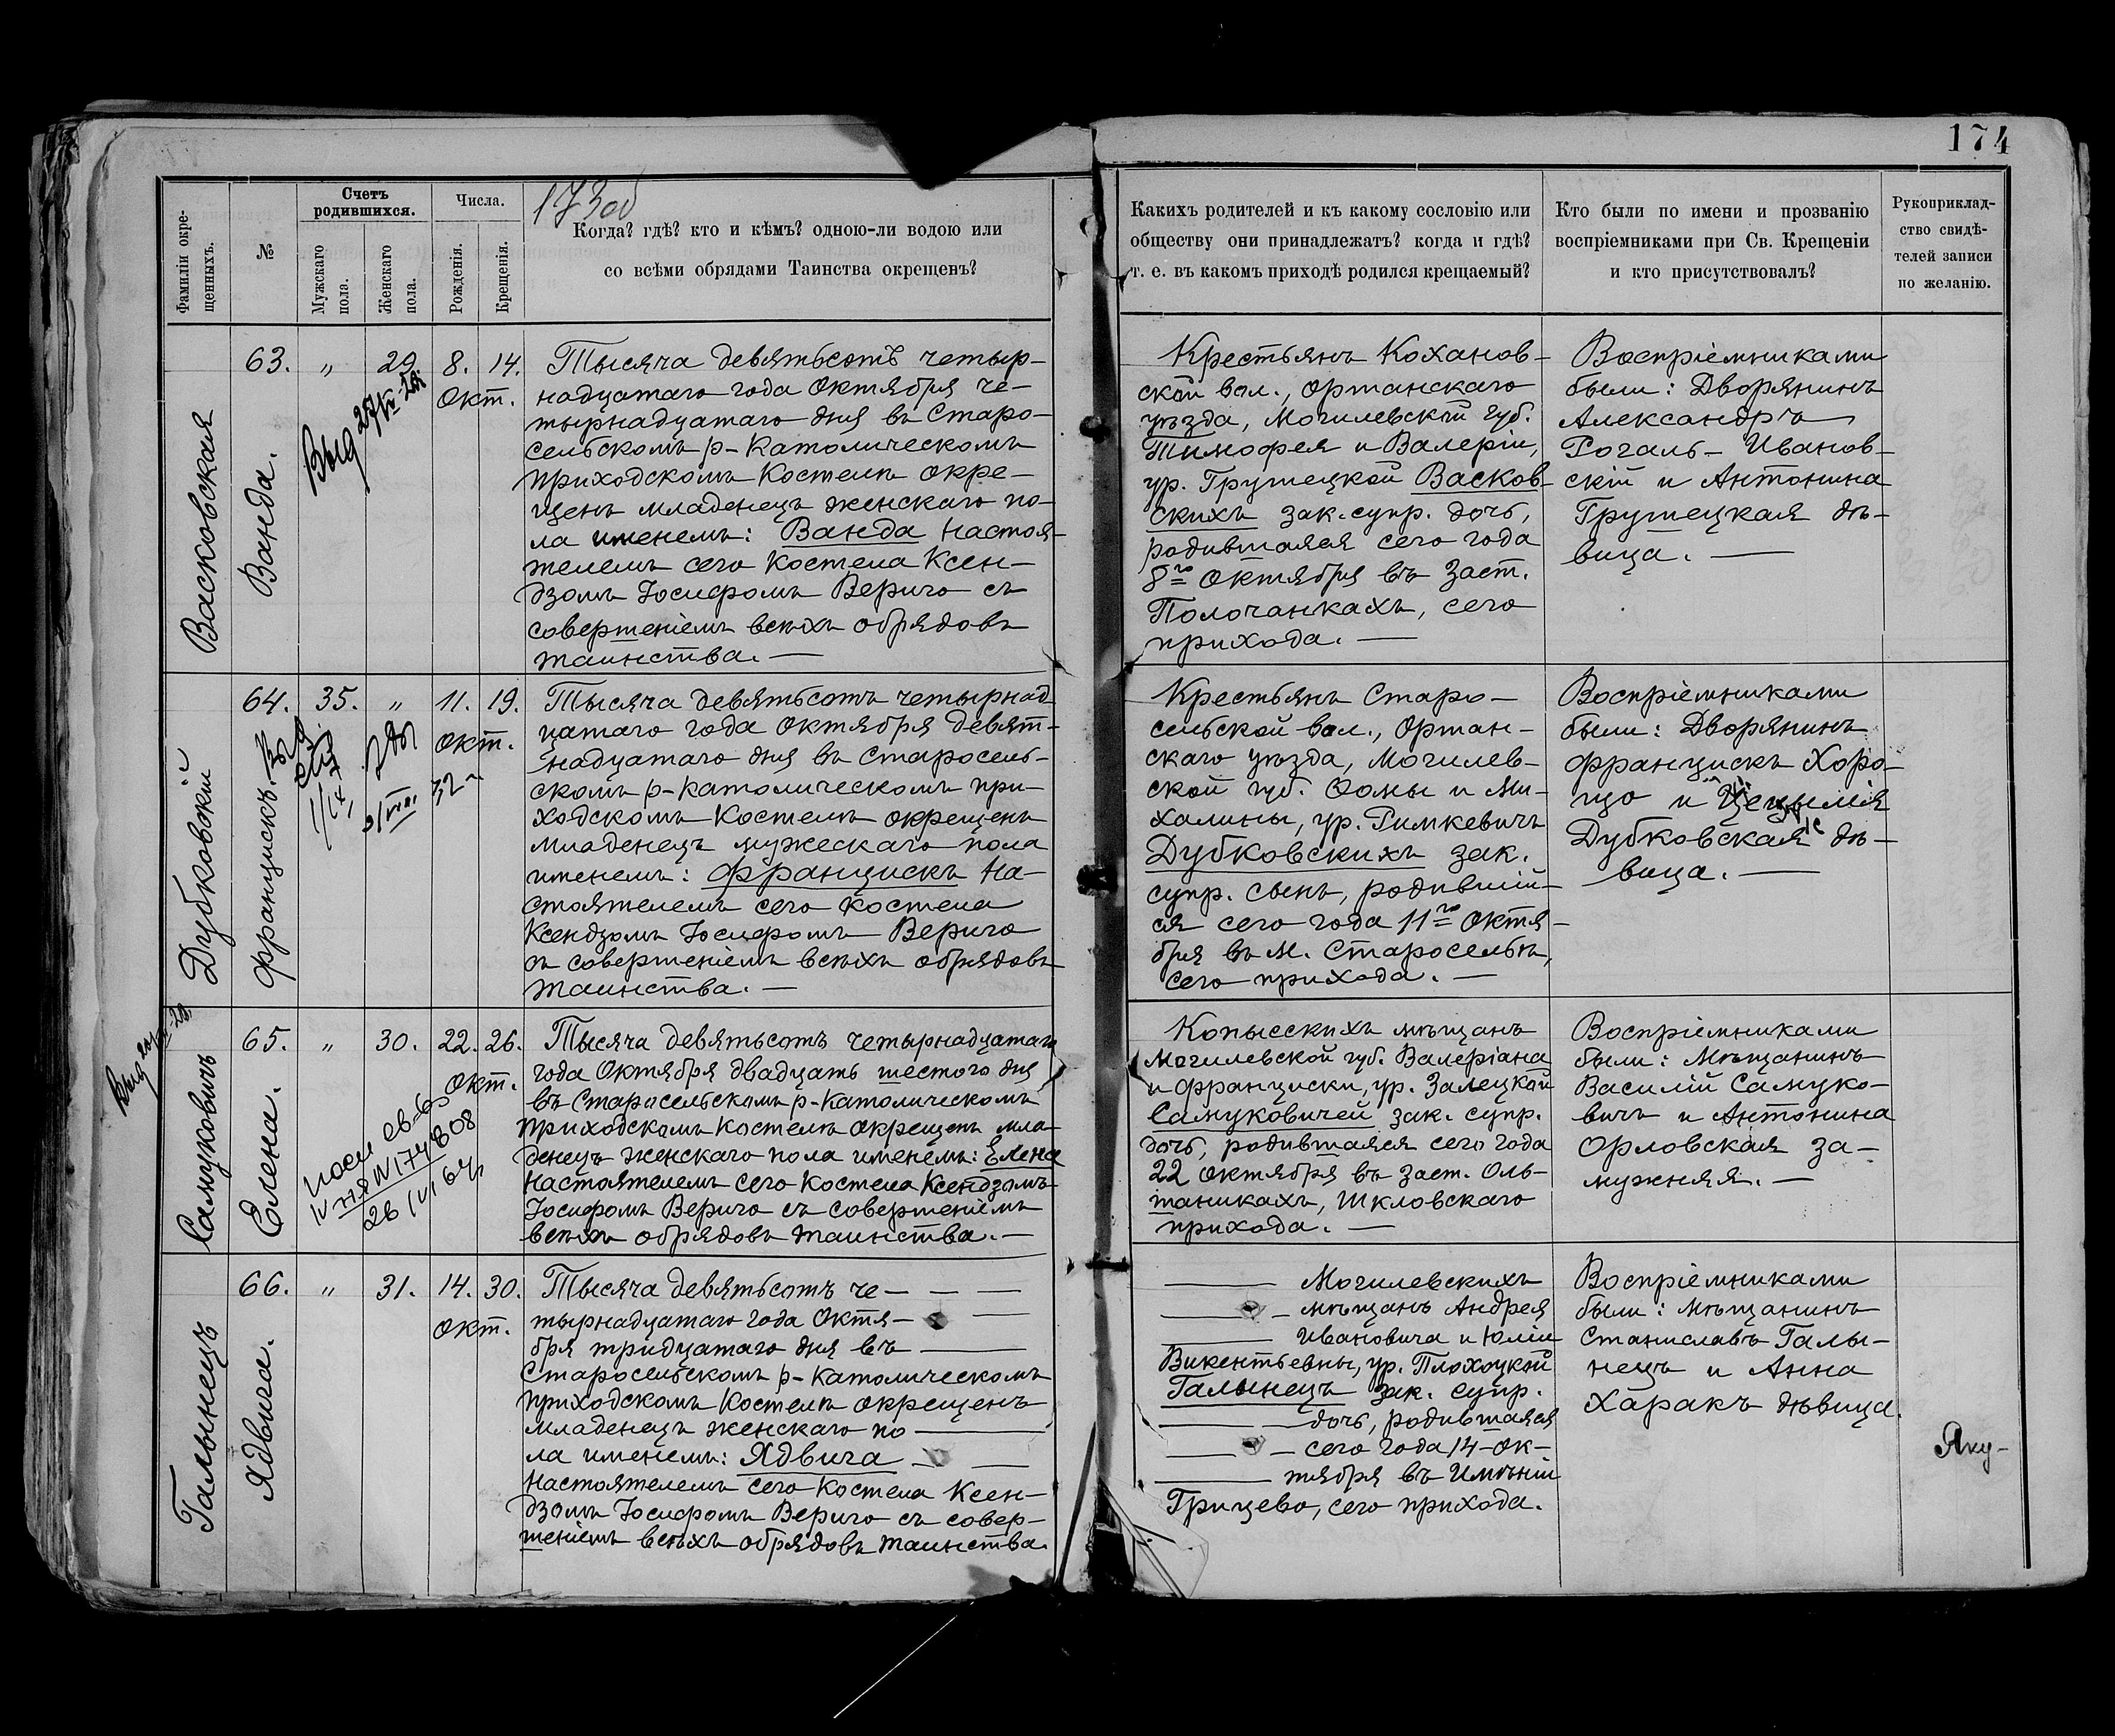 174
173об
Фамиліи окре-
щенныхъ.
№
Счетъ
родившихся.
Мужскаго
пола.
Женскаго
пола.
Числа.
Рожденія.
Крещенія.
Когда? гдѣ? кто и кѣмъ? одною-ли водою или
со всѣми обрядами Таинства окрещенъ?
Какихъ родителей и къ какому сословію или
обществу они принадлежатъ? когда и гдѣ?
т. е. въ какомъ приходѣ родился крещаемый?
Кто были по имени и прозванію
воспріемниками при Св. Крещеніи
и кто присутствовалъ?
Рукоприклад-
ство свидѣ-
телей записи
по желанію.
Васковская
Ванда.
63. " 29. 8. 14.
Окт.
Выд
Тысяча девятьсотъ четыр-
надцатаго года Октября че-
тырнадцатаго дня въ Старо-
сельскомъ р-Католическомъ
приходскомъ Костелѣ окре-
щенъ младенецъ женскаго по-
ла именемъ: Ванда Настоя-
телемъ сего Костела Ксен-
дзомъ Іосифомъ Верыго съ
совершеніемъ всѣхъ обрядовъ
таинства. —
Крестьянъ Коханов-
ской вол., Оршанскаго
уѣзда, Могилевской губ.
Тимофея и Валеріи,
ур. Грушецкой Васков-
скихъ зак. супр. дочь,
родившаяся сего года
8го Октября въ заст.
Полочанкахъ, сего
прихода. —
Воспріемниками
были: Дворянинъ
Александръ
Рогаль-Иванов-
скій и Антонина
Грушецкая дѣ-
вица. —
Дубковскій
Францискъ.
64. 35. " 11. 19.
Окт.
Тысяча девятьсотъ четырнад-
цатаго года Октября девят-
надцатаго дня въ Старосель-
скомъ р-католическомъ при-
ходскомъ Костелѣ окрещенъ
младенецъ мужескаго пола
именемъ: Францискъ На-
стоятелемъ сего Костела
Ксендзомъ Іосифомъ Верыго
съ совершеніемъ всѣхъ обрядовъ
таинства. —
Крестьянъ Старо-
сельской вол., Оршан-
скаго уѣзда, Могилев-
ской губ. Ѳомы и Ми-
халины, ур. Римкевичъ
Дубковскихъ зак.
супр. сынъ, родившій-
ся сего года 11го Октя-
бря въ м. Старосельѣ,
сего прихода. —
Воспріемниками
были: Дворянинъ
Францискъ Хоро-
що и
Дубковская дѣ-
вица. —
Самуковичъ
Елена.
65. " 30. 22. 26.
Окт.
Тысяча девятьсотъ четырнадцатаго
года Октября двадцать шестого дня
въ Старосельскомъ р-Католическомъ
приходскомъ Костелѣ окрещенъ мла-
денецъ женскаго пола именемъ: Елена
Настоятелемъ сего Костела Ксендзомъ
Іосифомъ Верыго съ совершеніемъ
всѣхъ обрядовъ таинства. —
Копысскихъ мѣщанъ
Могилевской губ. Валеріана
и Франциски, ур. Залецкой
Самуковичей зак. супр.
дочь, родившаяся сего года
22 Октября въ заст. Оль-
шаникахъ, Шкловскаго
прихода. —
Воспріемниками
были: Мѣщанинъ
Василій Самуко-
вичъ и Антонина
Орловская за-
мужняя. —
Галынецъ
Ядвига.
66. " 31. 14. 30.
Окт.
Тысяча девятьсотъ че-
тырнадцатаго года Октя-
бря тридцатаго дня въ
Старосельскомъ р-Католическомъ
приходскомъ Костелѣ окрещенъ
младенецъ женскаго по-
ла именемъ: Ядвига
Настоятелемъ сего Костела Ксен-
дзомъ Іосифомъ Верыго съ совер-
шеніемъ всѣхъ обрядовъ таинства.
Могилевскихъ
мѣщанъ Андрея
Ивановича и Юліи
Викентьевны, ур. Плохоцкой
Галынецъ зак. супр.
дочь, родившаяся
сего года 14-Ок-
тября въ Имѣніи
Грицево, сего прихода.
Воспріемниками
были: Мѣщанинъ
Станиславъ Галы-
нецъ и Анна
Харакъ дѣвица.
Яку-